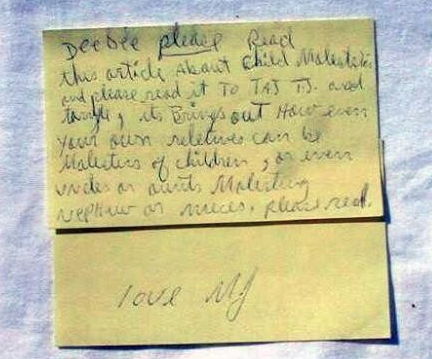 DeeDee please Read
this article About Child Molestation
and please read it TO TAJ TJ. and
, its Brings out How even
Your own reletives can be
Molesters of children, or even
uncles or aunts Molesting
nephew or nieces. please read.
love MJ